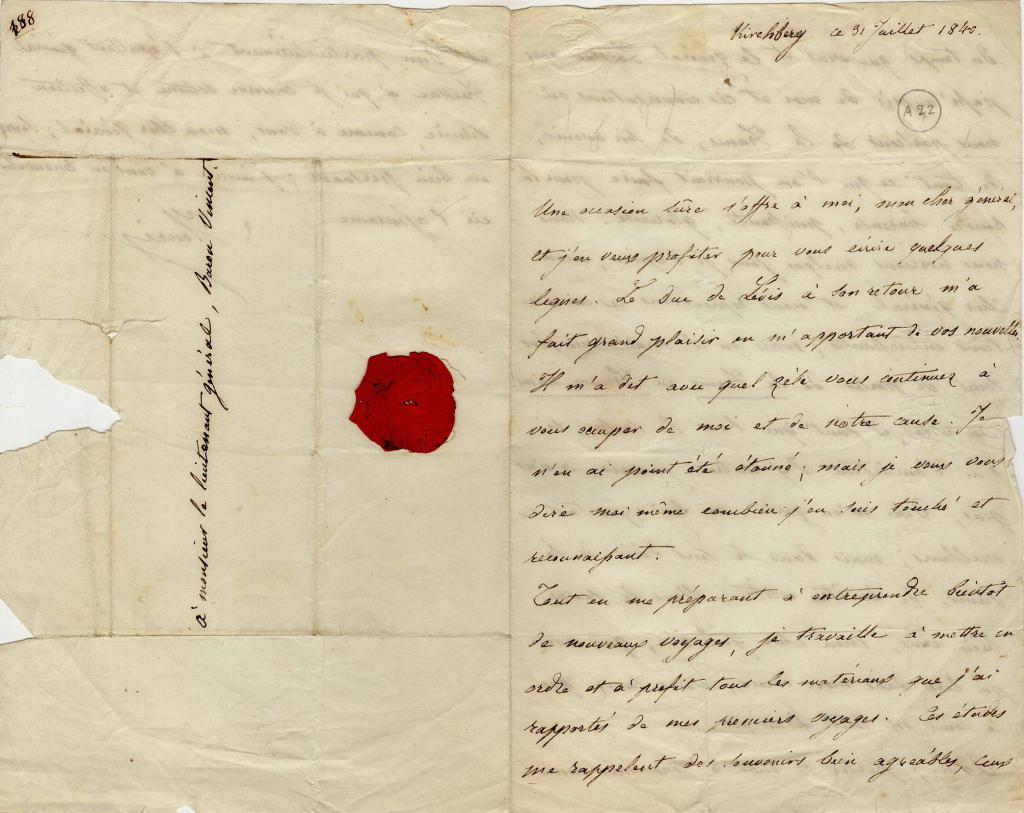 188
à monsieur le lieutenant général, Baron Vincent.
Kirchberg ce 31 Juillet 1840.
A 22
Une occasion sûre s'offre à moi, mon cher général,
et j'en veux profiter pour vous écrire quelques
lignes. Le Duc de Lévis à son retour m'a
fait grand plaisir en m'apportant de vos nouvelles.
Il m'a dit avec quel zèle vous continuez à
vous occuper de moi et de notre cause. Je
n'en ai point été étonné; mais je veux vous
dire moi même combien j'en suis touché et
reconnaissant.
Tout en me préparant à entreprendre bientôt
de nouveaux voyages, je travaille à mettre en
ordre et à profit tous les matériaux que j'ai
rapportés de mes premiers voyages. Ces études
me rappelent des souvenirs bien agréables, ceux